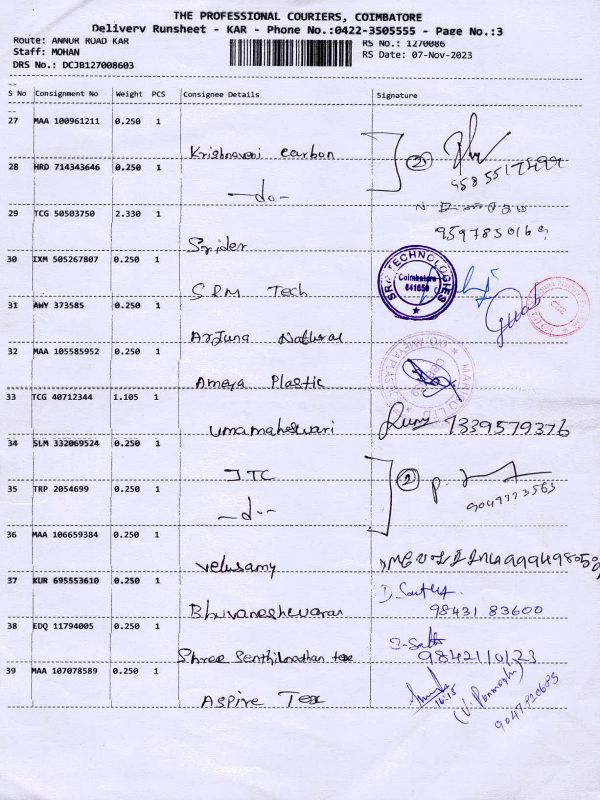 THE PROFESSIONAL COURIERS, COIMBATORE
Delivery Runsheet - KAR - Phone No.:0422-3505555 - Page No.:3
Route: ANNUR ROAD KAR
RS No.: 1270086
Staff: MOHAN
RS Date: 07-Nov-2023
DRS No.: DCJB127008603
S No Consignment No Weight PCS Consignee Details Signature
27 MAA 100961211 0.250 1
Krishnaveni carbon
28 HRD 714343646 0.250 1
2
-do-
29 TCG 50503750 2.330 1
Spider
30 IXM 505267807 0.250 1
SRM Tech
SRM TECHNOLOGIES
Coimbatore
641659
31 AWY 373585 0.250 1
Arjuna Natural
32 MAA 105585952 0.250 1
Amaya Plastic
33 TCG 40712344 1.105 1
Umamaheswari
7339579376
34 SLM 332069524 0.250 1
ITC
2
35 TRP 2054699 0.250 1
-do-
36 MAA 106659384 0.250 1
Velusamy
37 KUR 695553610 0.250 1
Bhuvaneshwaran
98431 83600
38 EDQ 11794005 0.250 1
Shree Senthilnadhan tex
9842110123
39 MAA 107078589 0.250 1
Aspire Tex
16:15
9047820685